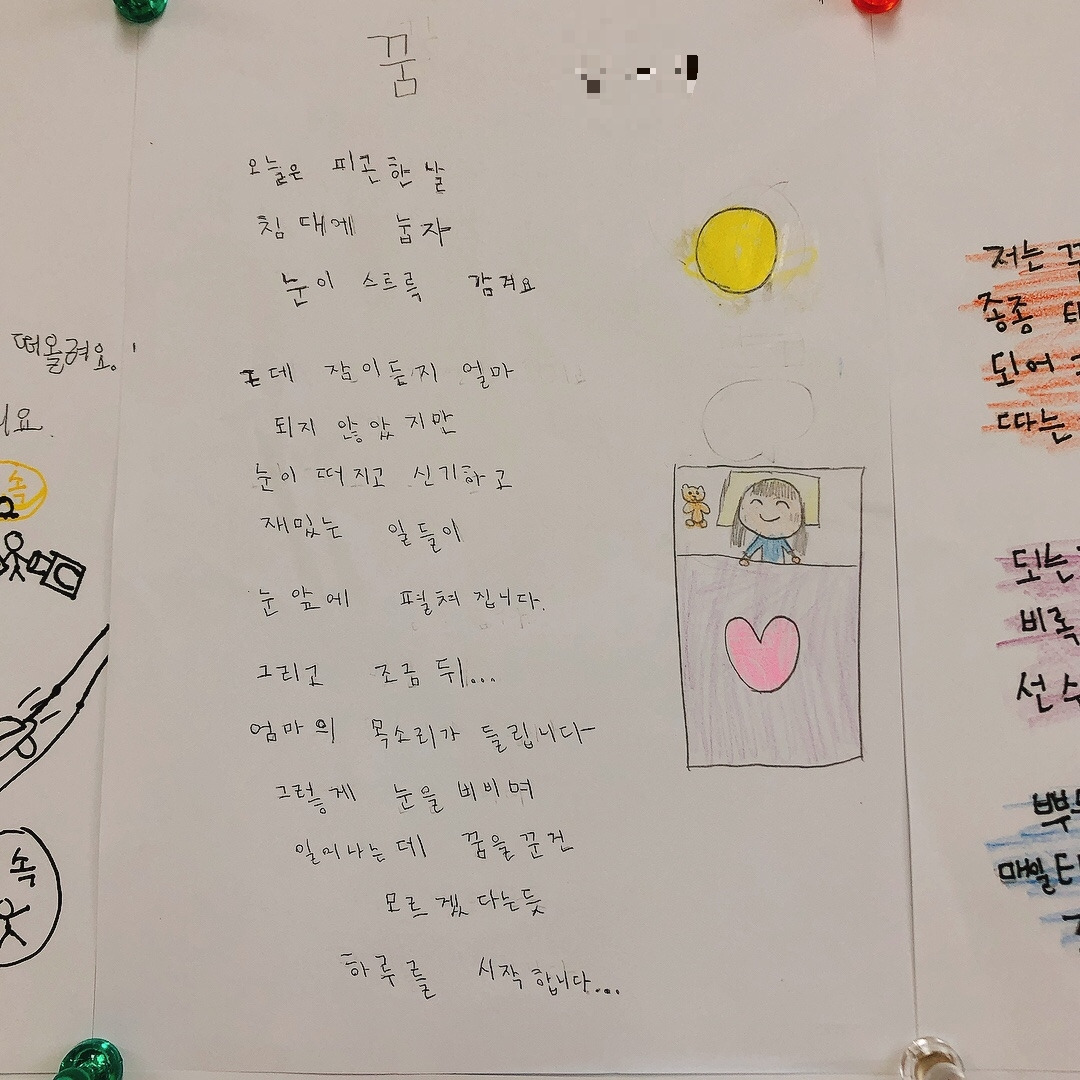 꿈
오늘은 피곤한 날
침대에 눕자
눈이 스르륵 감겨요
잠이든지 얼마
되지 않았지만
눈이 떠지고 신기하고
재밌는 일들이
눈 앞에 펼쳐집니다.
그리고 조금 뒤...
엄마의 목소리가 들립니다
그렇게 눈을 비비며
일어나는데 꿈을 꾼건
모르겠다는듯
하루를 시작합니다...
떠올려요.
속
속
저는
종종
되어
따는
되는
비록
선수
매일